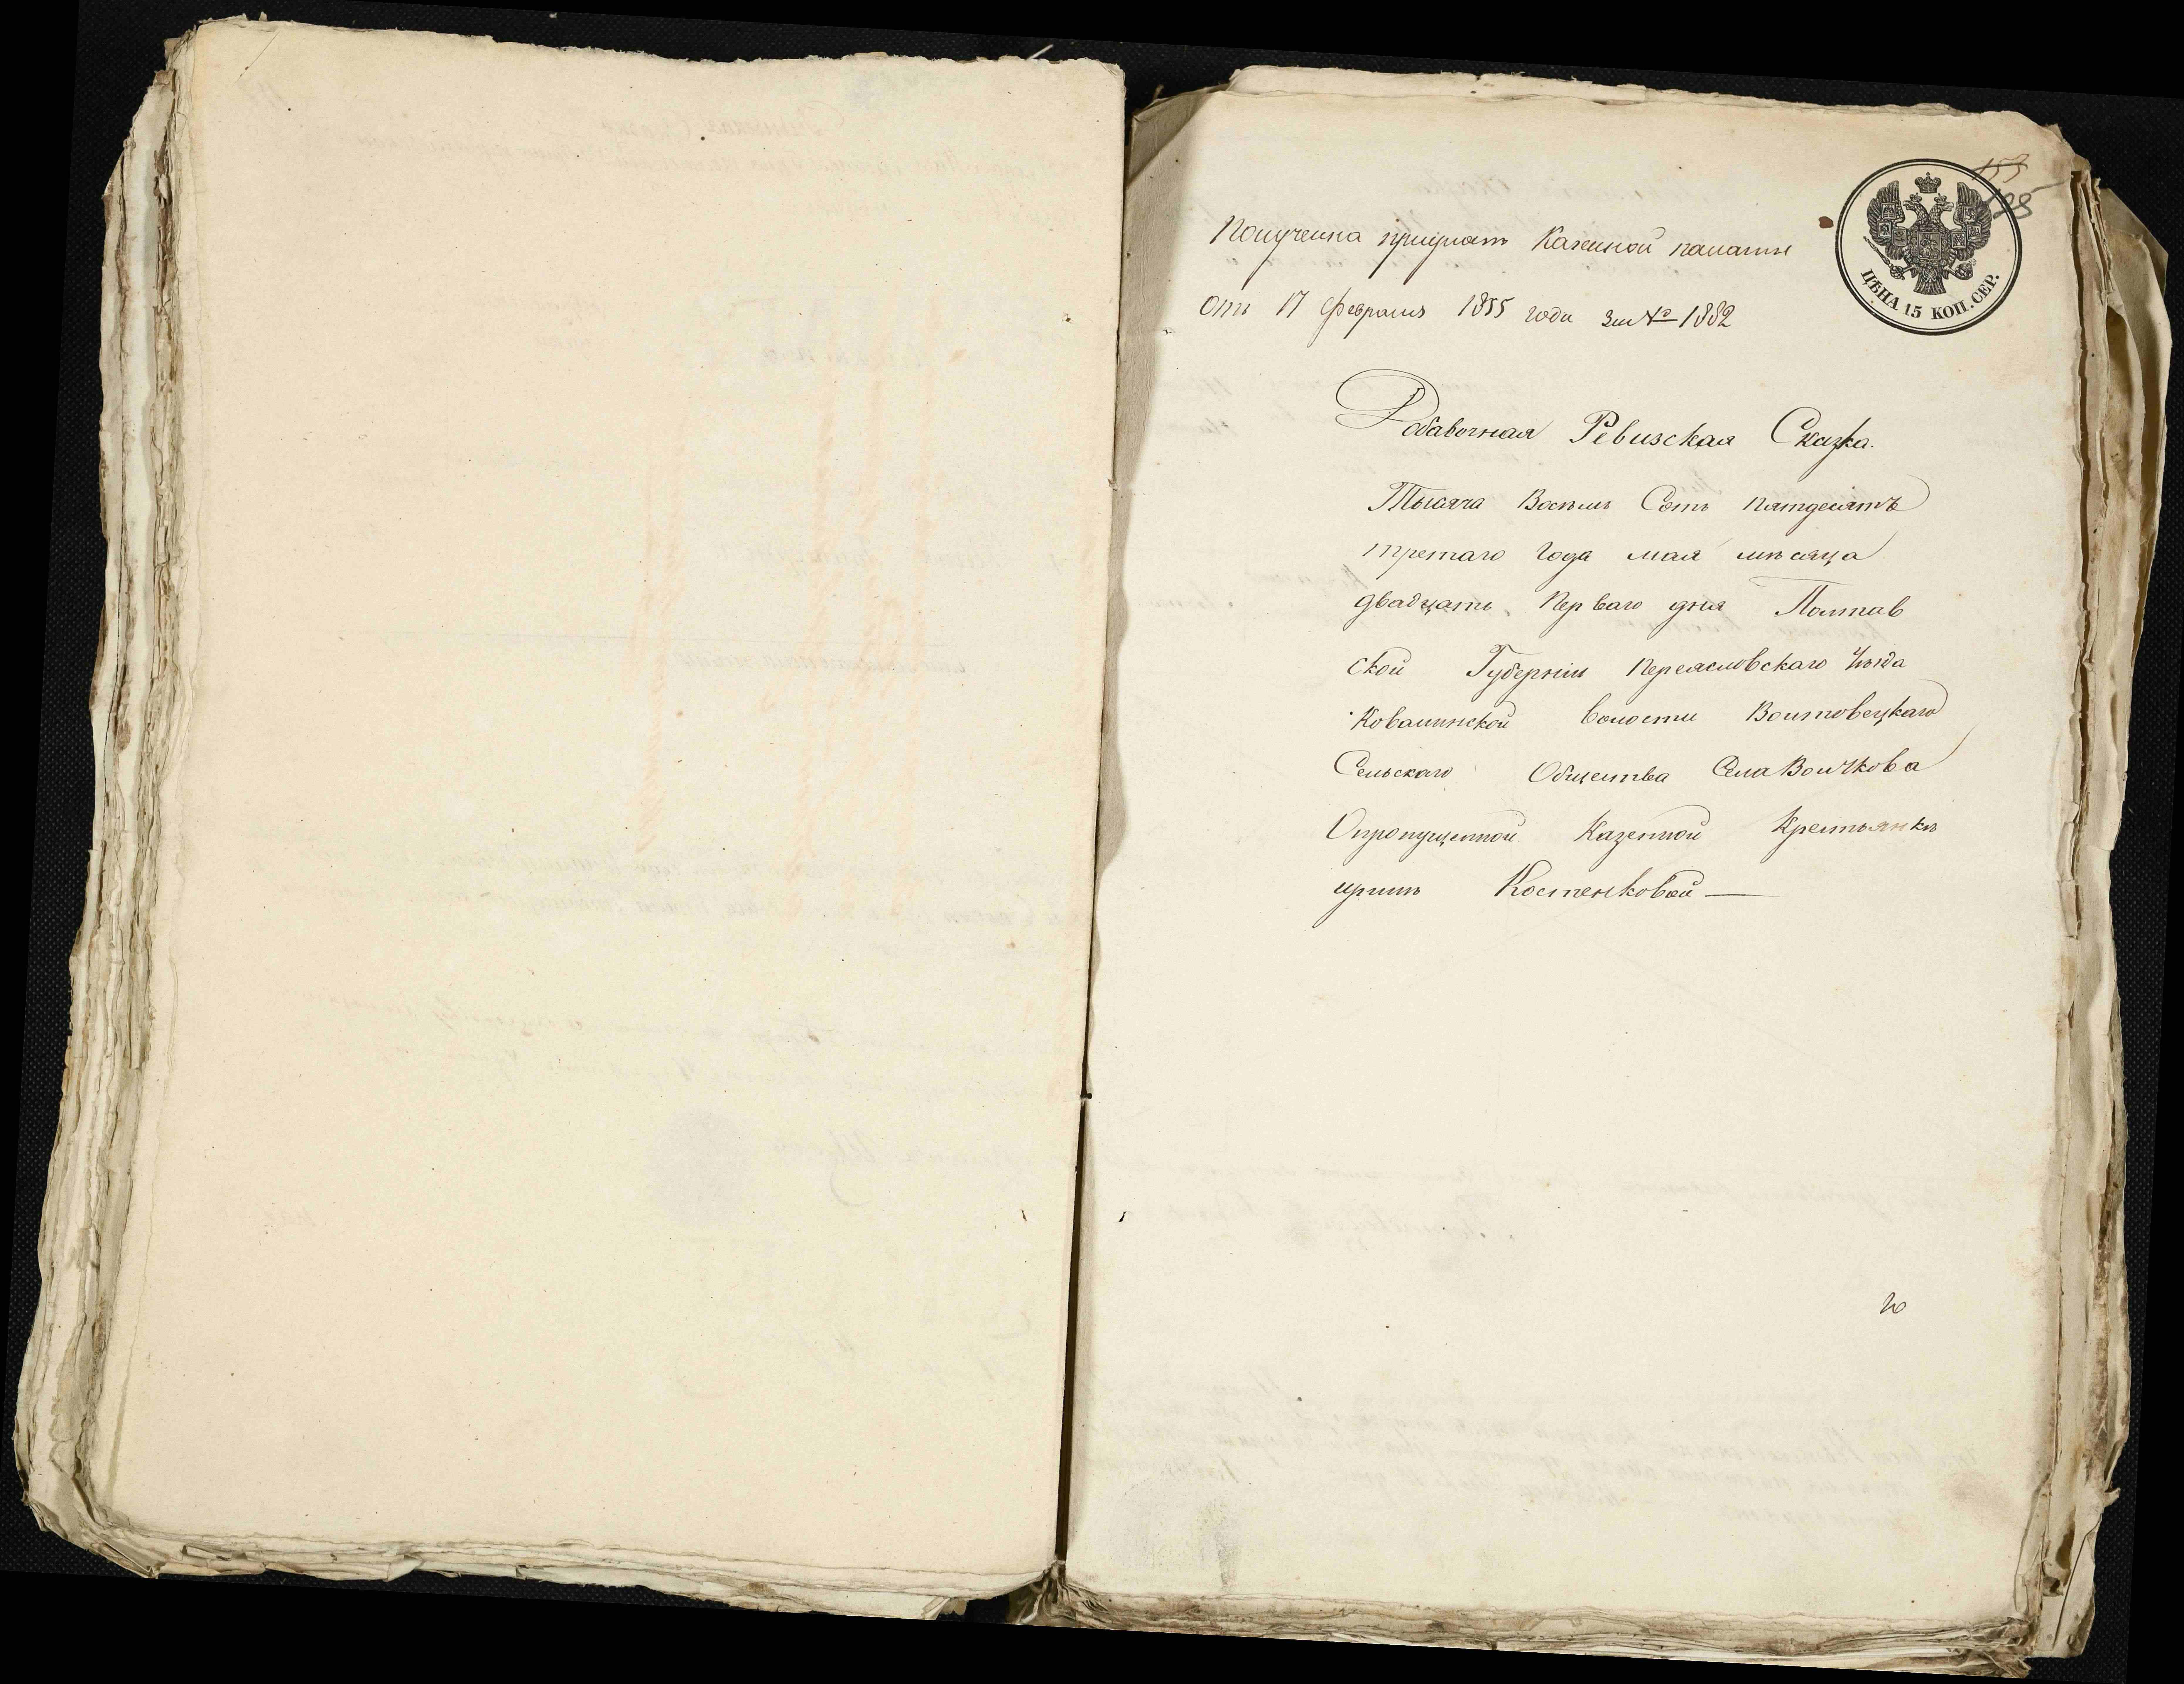 155
195
ЦѢНА 15 КОП. СЕР.
Полученна приуказъ Казеной палаты
отъ 17 Февраля 1855 года за № 1882
Добавочная Ревизская Сказка.
Тысяча Восемь Сотъ пятдесятъ
третаго Года мая мѣсяца
двадцать перваго дня Полтав
ской Губерніи Переясловскаго Уѣзда
Ковалинской волости Воитовецкаго
Сельскаго Общества Села Воичкова
Опропущенной Казенной Крестьянкѣ
иринѣ Костенковой —